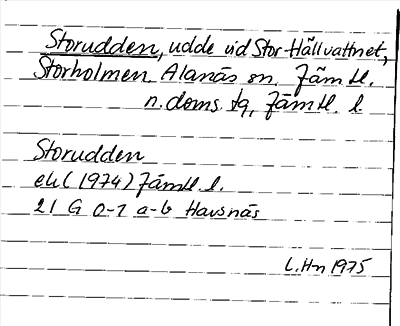 Storudden, udde vid Stor-Hällvattnet,
Storholmen Alanäs sn, Jämtl.
n. doms. tg, Jämtl. l.
Storudden
ek (1974) Jämtl. l.
21 G 0-1 a-b Havsnäs
L.Hn 1975